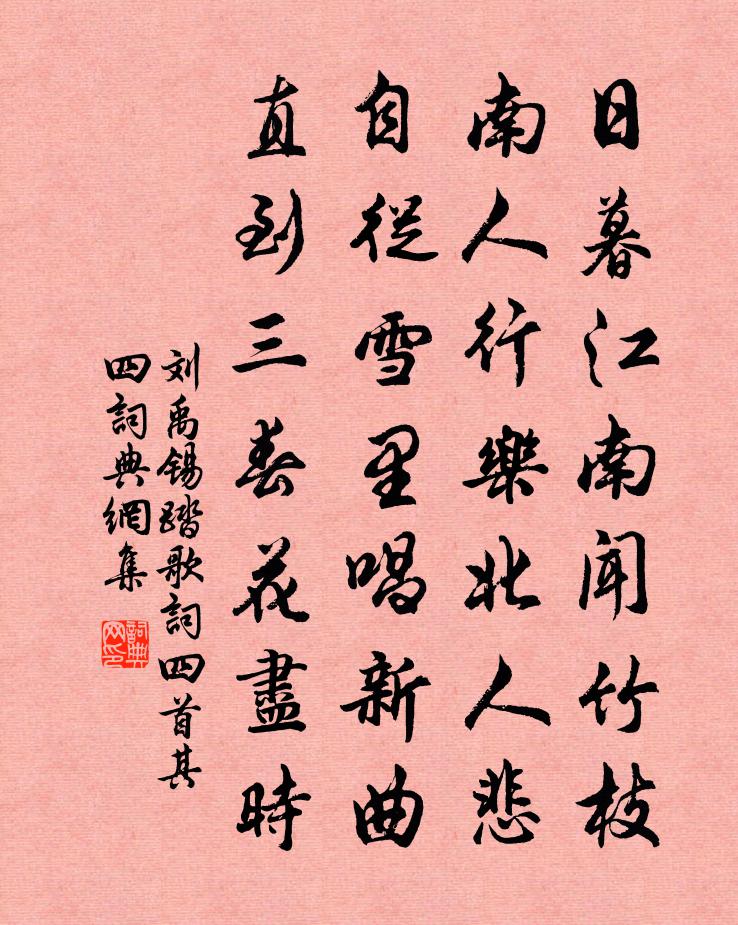 日暮江南闻竹枝
南人行樂北人悲
自從雪里唱新曲
直到三春花盡時
刘禹锡踏歌詞四首其
四詞典網集
詞典
网印